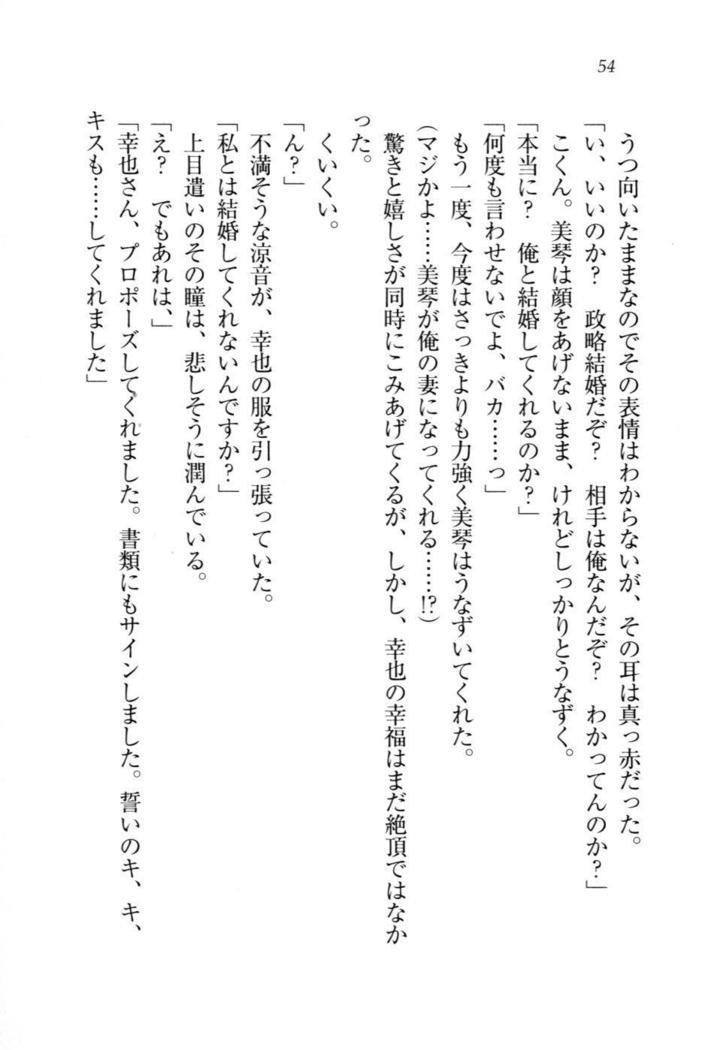 54
うつ向いたままなのでその表情はわからないが、その耳は真っ赤だった。
「い、いいのか？　政略結婚だぞ？　相手は俺なんだぞ？　わかってんのか？」
こくん。美琴は顔をあげないまま、けれどしっかりとうなずく。
「本当に？　俺と結婚してくれるのか？」
「何度も言わせないでよ、バカ……っ」
もう一度、今度はさっきよりも力強く美琴はうなずいてくれた。
（マジかよ……美琴が俺の妻になってくれる……!?）
驚きと嬉しさが同時にこみあげてくるが、しかし、幸也の幸福はまだ絶頂ではなか
った。
くいくい。
「ん？」
不満そうな涼音が、幸也の服を引っ張っていた。
「私とは結婚してくれないんですか？」
上目遣いのその瞳は、悲しそうに潤んでいる。
「え？　でもあれは、」
「幸也さん、プロポーズしてくれました。書類にもサインしました。誓いのキ、キ、
キスも……してくれました」